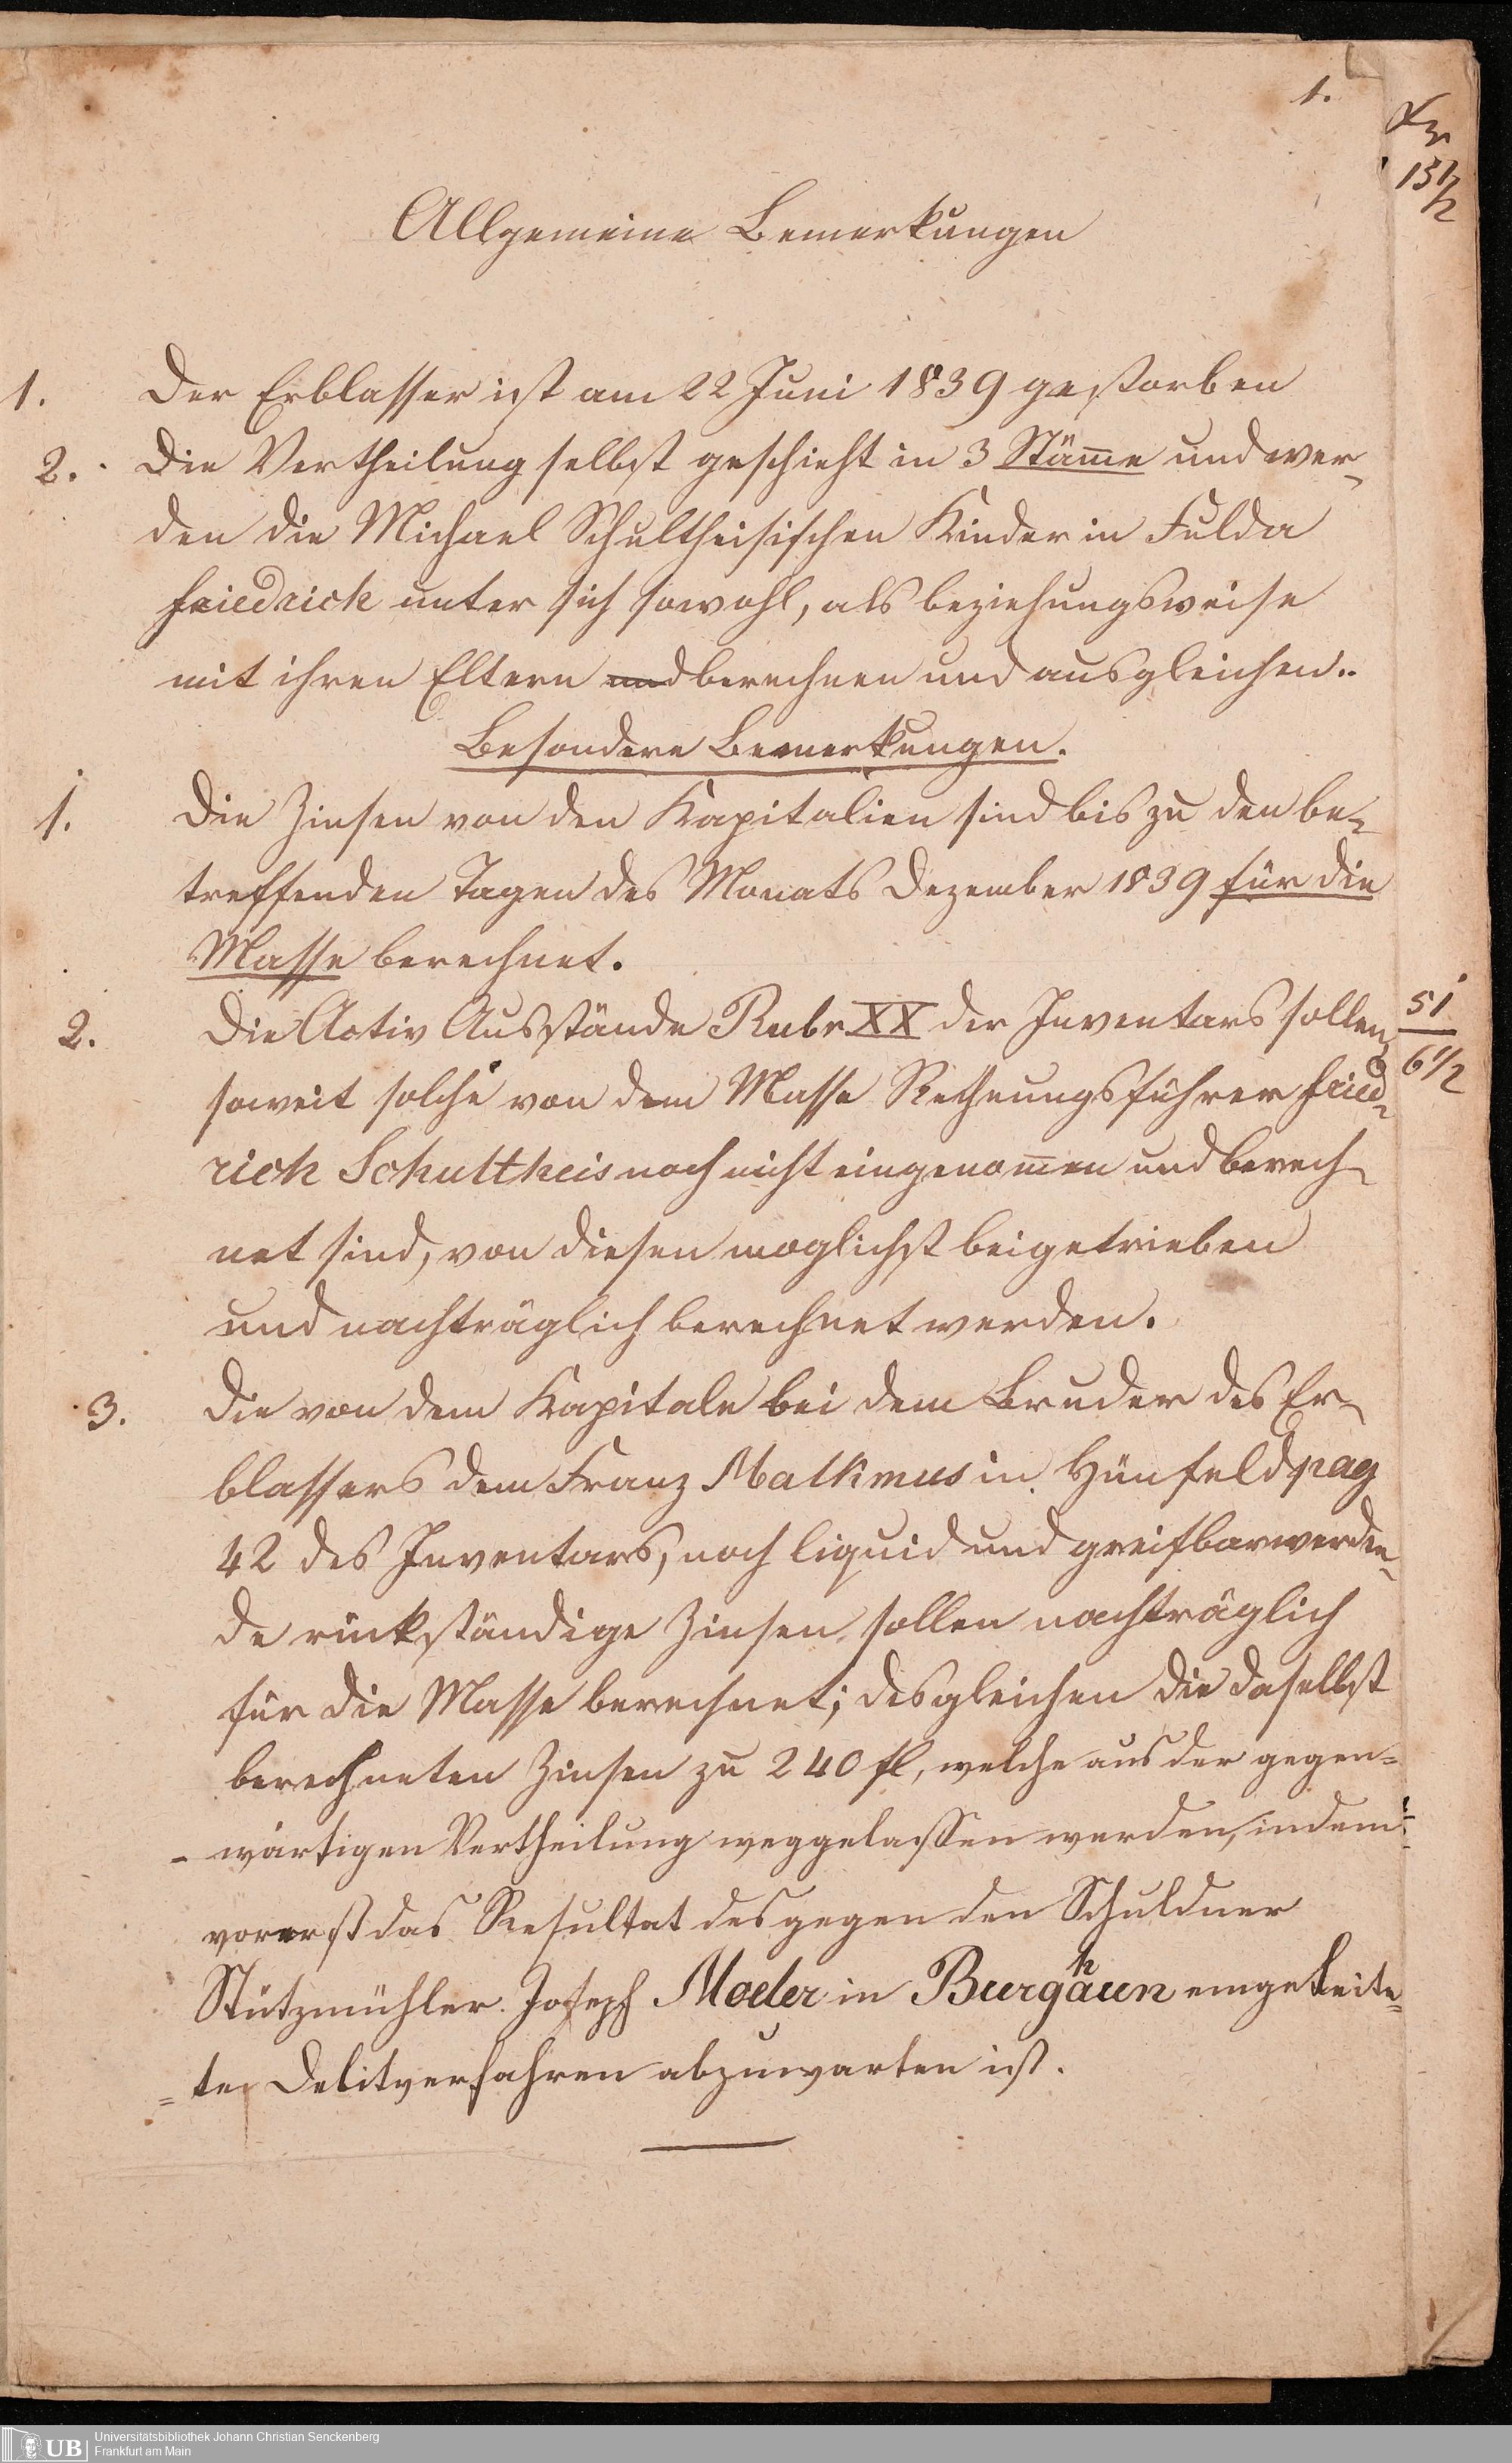 1.
Xr
15 1/2
Allgemeine Bemerkungen
1. Der Erblasser ist am 22 Juni 1839 gestorben
2. Die Vertheilung selbst geschieht in 3 Stämme und wer-
den die Michael Schultheisischen Kinder in Fulda
friedrich unter sich sowohl, als beziehungsweise
mit ihren Eltern und berechnen und ausgleichen..
Besondere Bemerkungen.
1. Die Zinsen von den Kapitalien sind bis zu den be-
treffenden Tagen des Monats Dezember 1839 für die
Masse berechnet.
2. Die Activ Ausstände Rubr XX der Inventars sollen,
51
6 1/2
soweit solche von dem Masse Rechnungsführer fried-
rich Schultheis noch nicht eingenom̅en und berech-
net sind, von diesen moglichst beigetrieben
und nachträglich berechnet werden.
3. Die von dem Kapitale bei dem Bruder des Er-
blassers dem Franz Malkmus in Hünfeld pag
42 des Inventars, noch liquid und greifbar werden-
de rückständige Zinsen sollen nachträglich
für die Masse berechnet; desgleichen die daselbst
berechneten Zinsen zu 240 fl, welche aus der gegen=
- wärtigen Vertheilung weggelassen werden, indem
vorerst das Resultat des gegen den Schuldner
Stützmühler Joseph Moeller in Burghaun eingeleite=
=ten Debitverfahren abzuwarten ist.
UB
Universitätsbibliothek Johann Christian Senckenberg
Frankfurt am Main